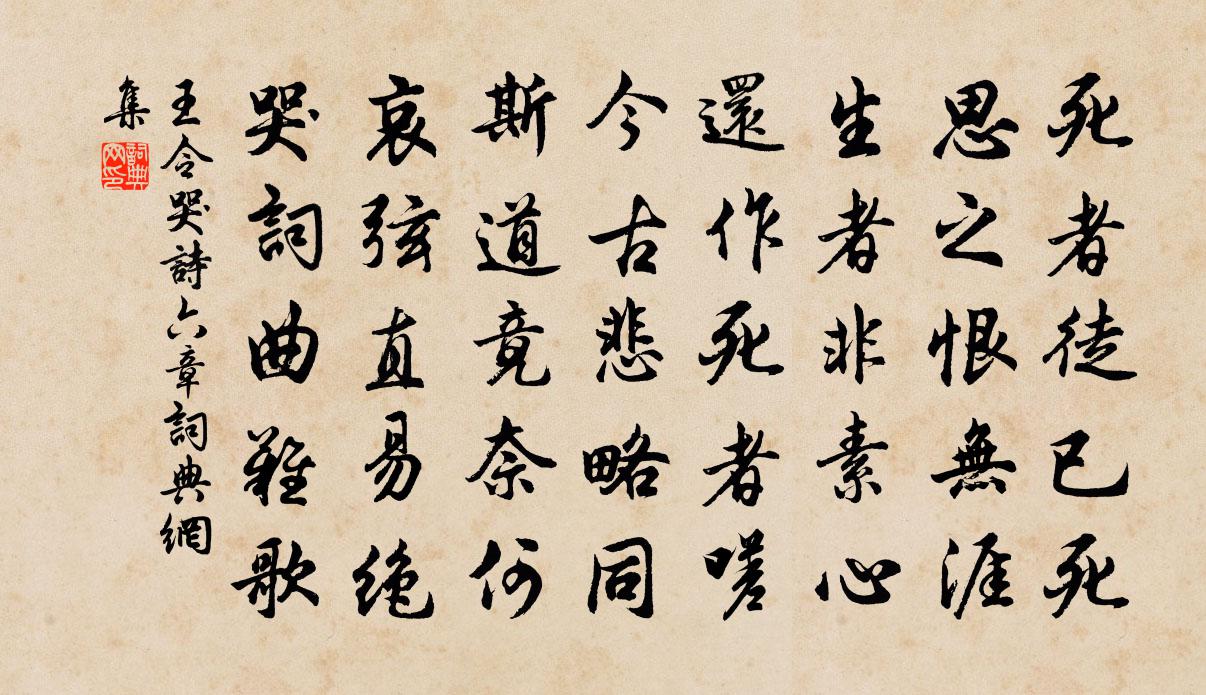 死者徒已死
思之恨無涯
生者非素心
還作死者嗟
今古悲略同
斯道竟奈何
哀弦直易絶
哭詞曲難歌
王令哭詩六章詞典網
集
詞典
網印